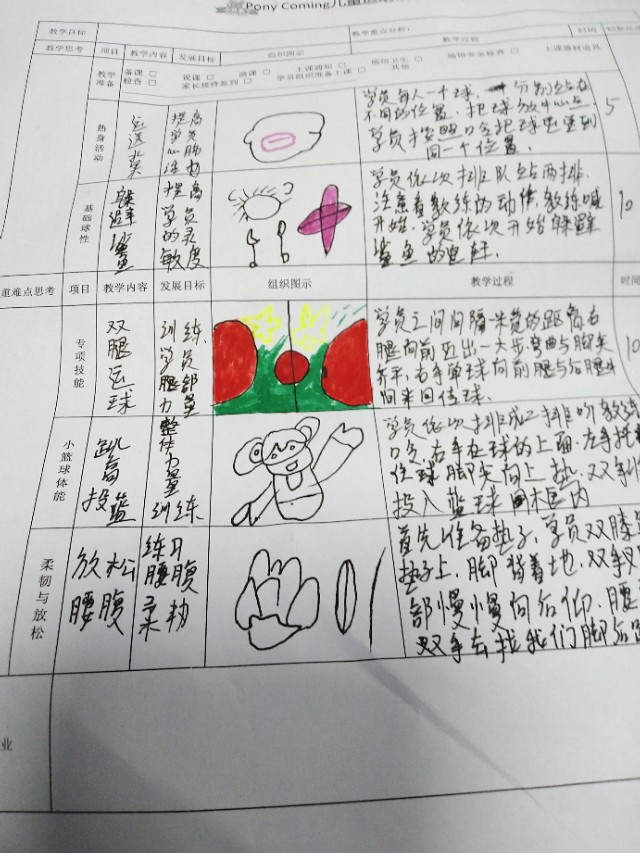 Pony Coming儿童
教学目标
教学重点分析:
教学思考 项目 教学内容 发展目标 组织图示 教学过程 时间
教学准备 备课 □ 说课 □ 演课 □ 上课通知 □ 场馆卫生 □ 场馆安全检查 □ 上课器材道具
检查 □ 家长接待签到 □ 学员组织准备上课 □ 其他
热身活动
运送水果
提高学员心肺活力
学员每人一个球,分别站在
不同的位置,把球放中心点,
学员按照口令把球运送到
同一个位置。
5
基础球性
躲避鲨鱼
提高学员的灵敏度
学员依次排队站两排,
注意看教练的动作,教练喊
开始,学员依次开始躲避
鲨鱼的追赶。
10
重难点思考 项目 教学内容 发展目标 组织图示 教学过程 时间
专项技能
双腿运球
训练学员腿部力量
学员之间间隔一米宽的距离右
腿向前迈出一大步弯曲与脚尖
齐平,右手单球向前腿与后腿中
间来回位球。
10
小篮球体能
跳高投篮
整体力量训练
学员依次排成二排听教练
口令,右手在球的上面,左手托
住球脚尖向上垫,双手
投入篮球框内
柔韧与放松
放松腰腹
练习腰腹柔韧
首先准备垫子,学员双膝
垫子上,脚背着地,双手
部慢慢向后仰,腰
双手去找我们脚后
业